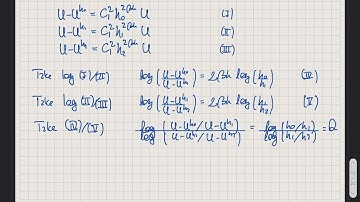 U-U^{h_0} = C_1^2 h_0^{2βh} U (I)
U-U^{h_1} = C_1^2 h_1^{2βh} U (II)
U-U^{h_2} = C_1^2 h_2^{2βh} U (III)
Take log (I)/(II) log (U-U^{h_0} / U-U^{h_1}) = 2βh log (h_0/h_1) (IV)
Take log (II)/(III) log (U-U^{h_1} / U-U^{h_2}) = 2βh log (h_1/h_2) (V)
Take (IV)/(V) log (U-U^{h_0}/U-U^{h_1}) / log (U-U^{h_1}/U-U^{h_2}) = log (h_0/h_1) / log (h_1/h_2) = Q